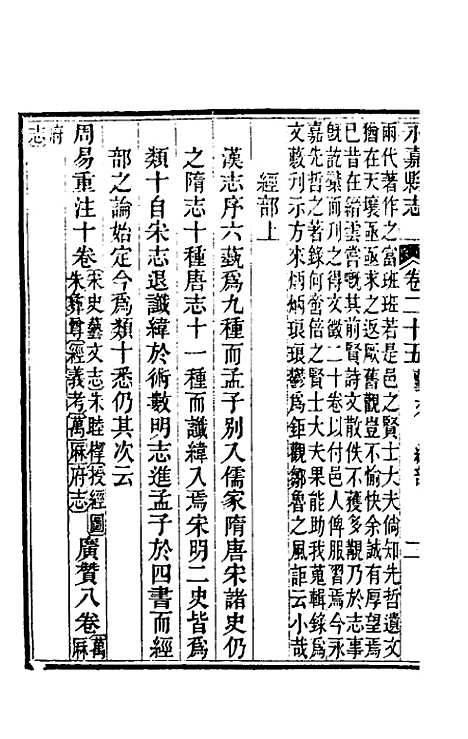 永嘉縣志 卷二十五 藝文 經部 二
兩代著作之富班班若是邑之賢士大夫倘知先哲遺文
猶在天壤亟亟求之返厥舊觀豈不愉快余誠有厚望焉
已昔在縉雲嘗其前賢詩文散佚不獲多觀乃於志事
旣訖橐而刋之得文徵二十卷以付邑人俾服習焉今永
嘉先哲之著錄何啻倍之賢士大夫果能助我蒐輯錄爲
文藪刋示方來炳炳琅琅鬱爲鉅觀鄒魯之風詎云小哉
經部上
漢志序六蓺爲九種而孟子别入儒家隋唐宋諸史仍
之隋志十種唐志十一種而讖緯入焉宋明二史皆爲
類十自宋志退讖緯於術數明志進孟子於四書而經
部之論始定今爲類十悉仍其次云
周易重注十卷宋史藝文志朱睦㮮授經圖朱彝尊經義考萬厤府志 廣贊八卷萬厤
府志